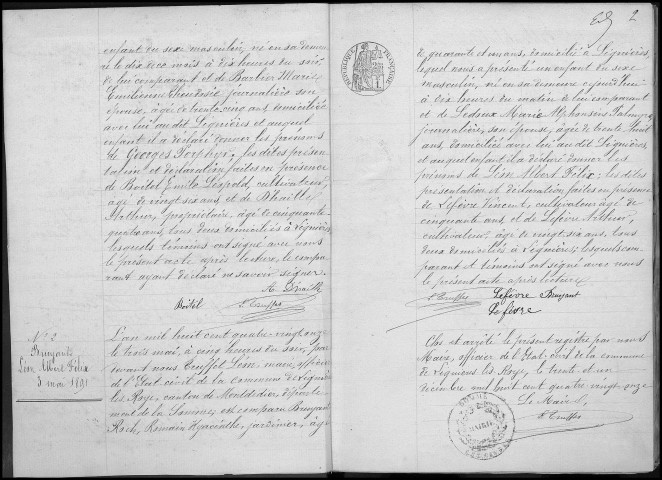 enfant du sexe masculin, né en sa demeu
re le dix sept mois à dix heures du soir,
de lui comparant et de Barbier Marie
Emilienne Theudosie, journalière son
épouse, âgée de trente cinq ans domiciliée
avec lui au dit Lignières et auquel
enfant il a déclaré donner les prénoms
de Georges Porphyr, les dites présen
tation et déclaration faites en présence
de Boitel Emile Léopold, cultivateur,
âgé de vingt six ans et de
Arthur, propriétaire, âgé de cinquante
quatre ans, tous deux domiciliés à Lignières,
lesquels témoins ont signé avec nous
le présent acte après lecture, le compa
rant ayant déclaré ne savoir signer
Boitel E. Truffet
N° 2
Bruyant
Léon Albert Félix
3 mai 1891
L'an mil huit cent quatre vingt onze
le trois mai, à cinq heures du soir, par
devant nous Truffet Léon maire, officier
de l'Etat civil de la commune de Lignières
les Roye, canton de Montdidier départe
ment de la Somme, est comparu Bruyant
Roch, Romain Hyacinthe, jardinier, âgé
2
REPUBLIQUE FRANÇAISE
de quarante et un ans, domicilié à Lignières,
lequel nous a présenté un enfant du sexe
masculin, né en sa demeure ce jourd'hui
à dix heures du matin de lui comparant
et de Ledoux Marie Alphonsine Palmyre
journalière, son épouse, âgée de trente huit
ans, domiciliée avec lui au dit Lignières,
et auquel enfant il a déclaré donner les
prénoms de Léon Albert Félix; les dites
présentation et déclaration faites en présence
de Lefèvre Vincent, cultivateur âgé de
cinquante ans, et de Lefèvre Arthur,
cultivateur âgé de vingt six ans, tous
deux domiciliés à Lignières, lesquels com
parant et témoins ont signé avec nous
le présent acte après lecture
E. Truffet Lefèvre Bruyant
Lefèvre
Clos et arrêté le présent registre par nous
Maire, officier de l'Etat-civil de la commune
de Lignières les Roye, le trente et un
décembre mil huit cent quatre vingt onze
Le Maire,
E. Truffet